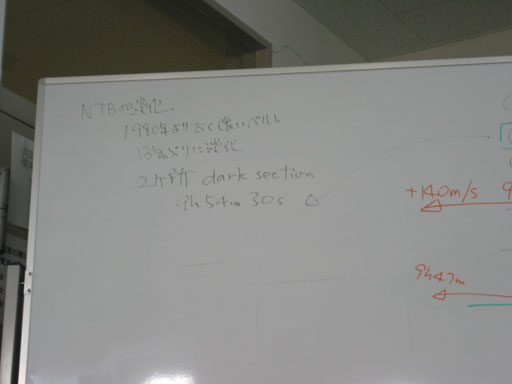 NTBの淡化.
1990年より太く濃いベルト
13年ぶりに淡化
2ヶ所 dark section
9h 54m 30s
+140m/s
9h47m